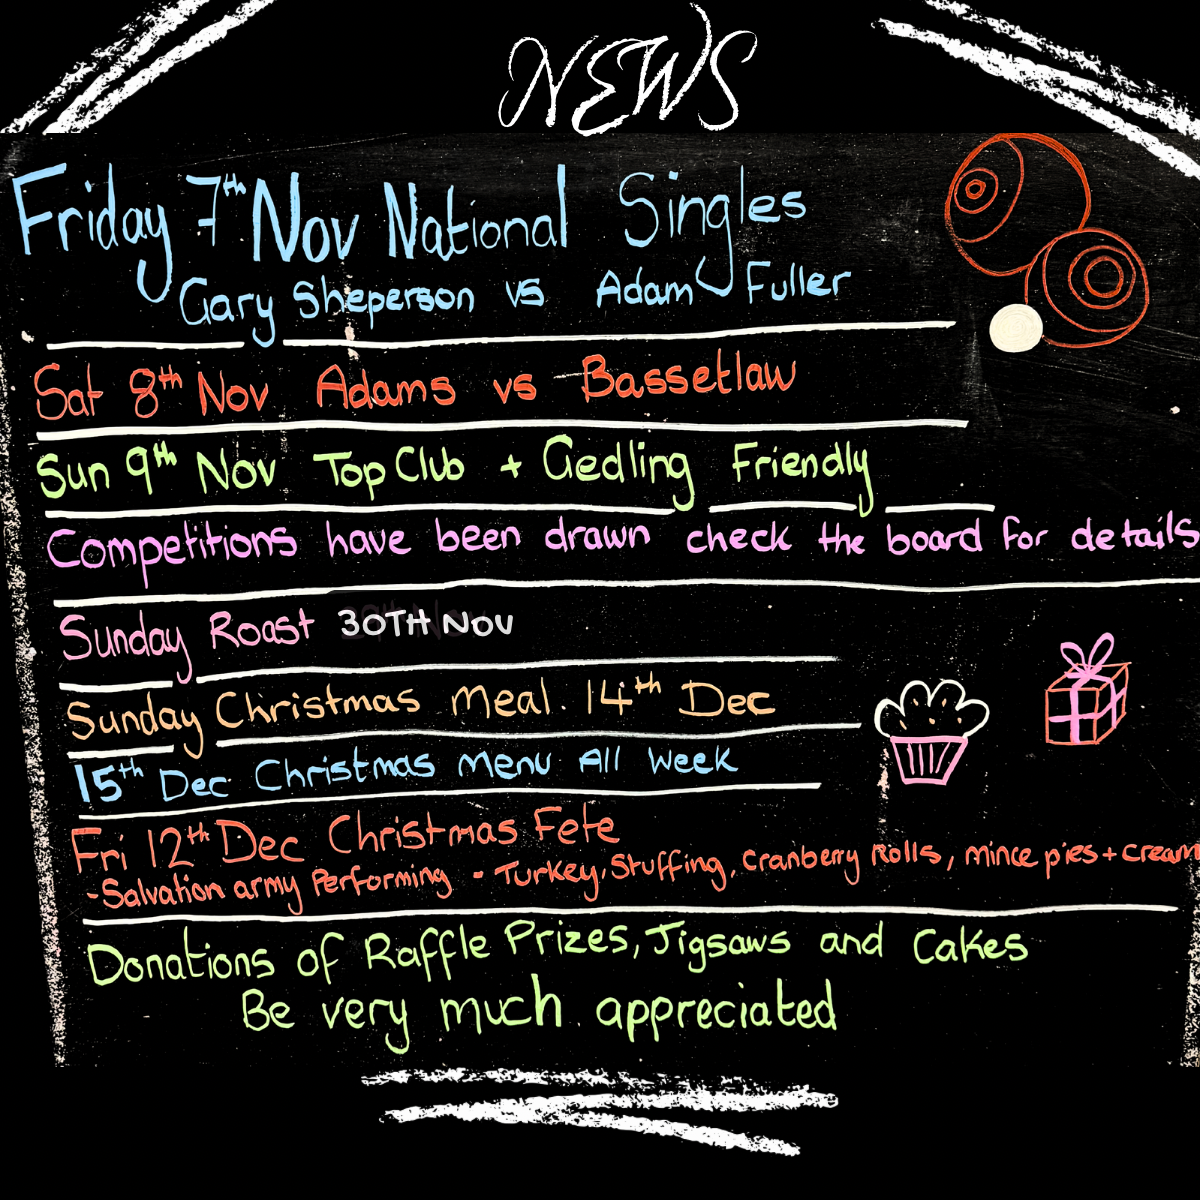 NEWS
Friday 7th Nov National Singles
Gary Sheperson vs Adam Fuller
Sat 8th Nov Adams vs Bassetlaw
Sun 9th Nov Top Club + Gedling Friendly
Competitions have been drawn check the board for details
Sunday Roast 30TH NOV
Sunday Christmas Meal. 14th Dec
15th Dec Christmas Menu All Week
Fri 12th Dec Christmas Fete
-Salvation army Performing - Turkey, Stuffing, Cranberry Rolls, mince pies + cream
Donations of Raffle Prizes, Jigsaws and Cakes
Be very much appreciated